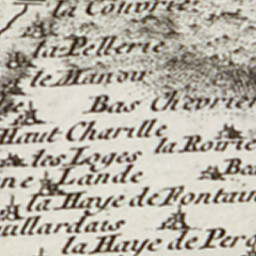 la Couvrie
la Pellerie
le Manou
Bas Chevrier
Haut Charille
la Roirie
les Loges
ne Lande
la Haye de Fontain
uillardais
la Haye de Perg